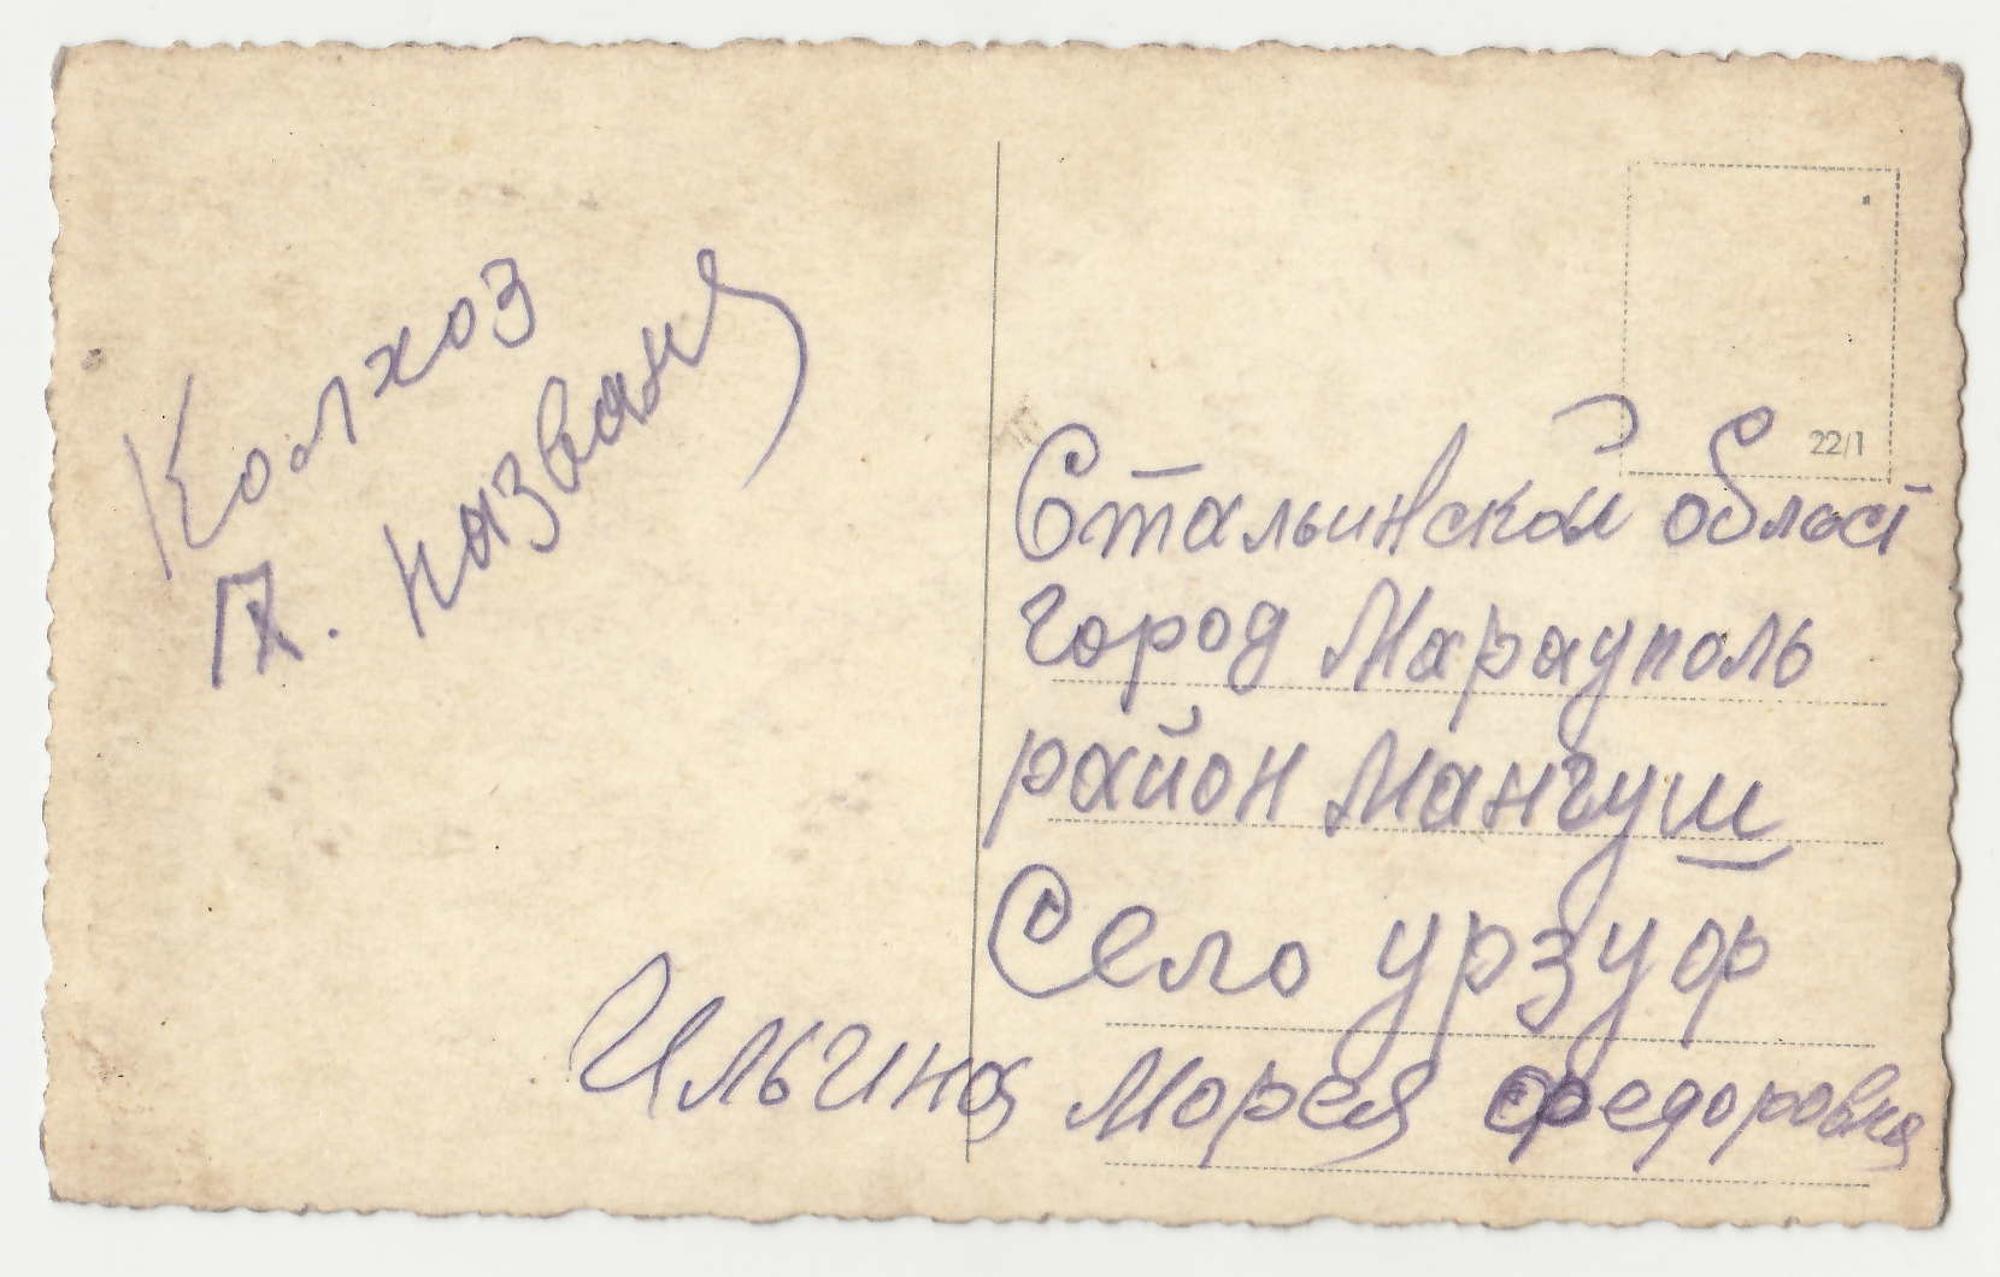 Колхоз
П. названя
22/1
Стальинской област
город Марауполь
район Мангуш
Село урзуф
ИльинаМорея федоровна